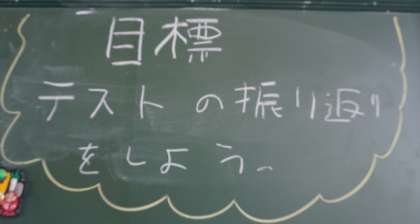 目標
テストの振り返り
をしよう。